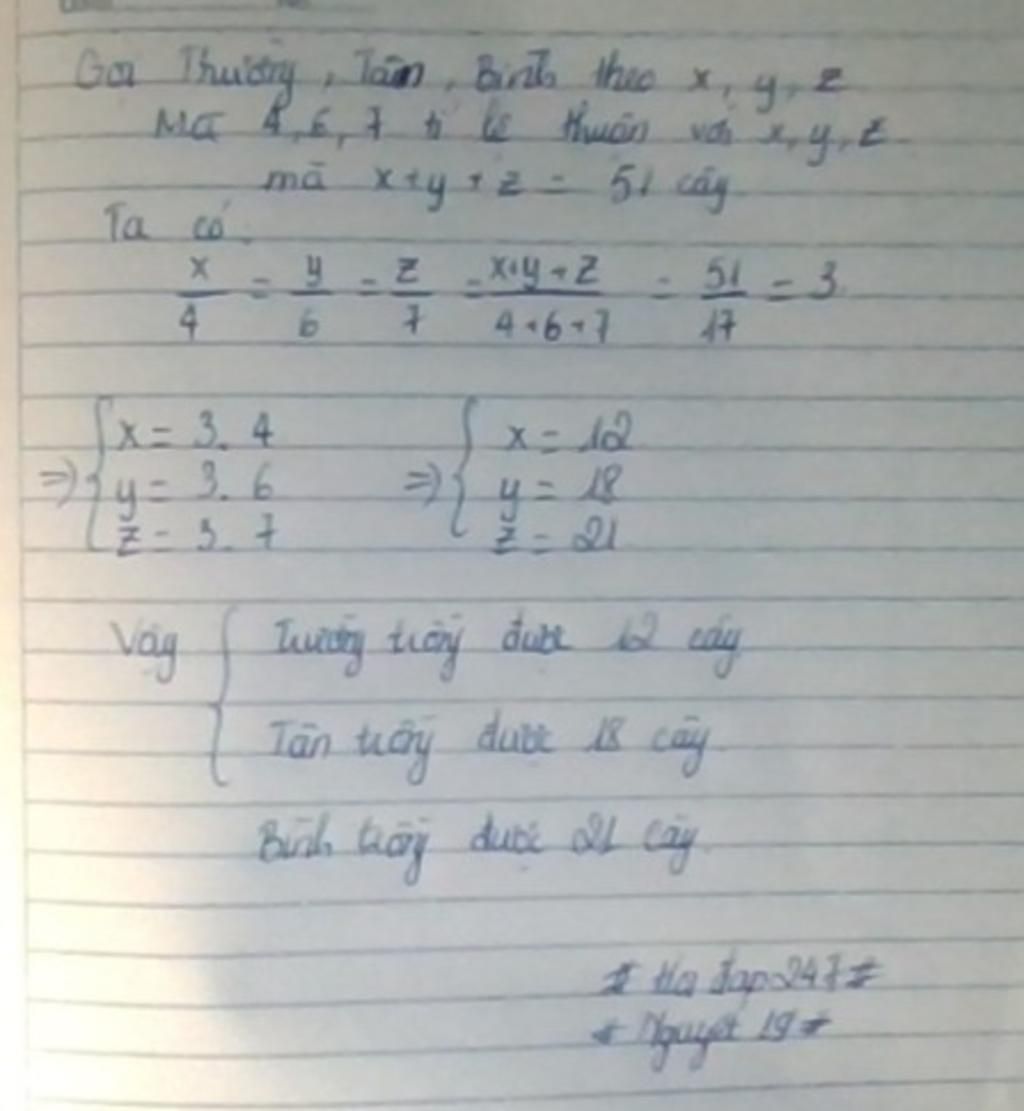 Gọi Thương, Tân, Bình theo x, y, z
Mà 4, 6, 7 tỉ lệ thuận với x, y, z
mà x + y + z = 51 cây
Ta có:
x/4 = y/6 = z/7 = x+y+z/4+6+7 = 51/17 = 3
=> { x = 3. 4 => { x = 12
y = 3. 6 y = 18
z = 3. 7 z = 21
Vậy { Trường trồng được 12 cây
Tân trồng được 18 cây
Bình trồng được 21 cây
# Hỏi đáp 247 #
* Nguyệt 19 *